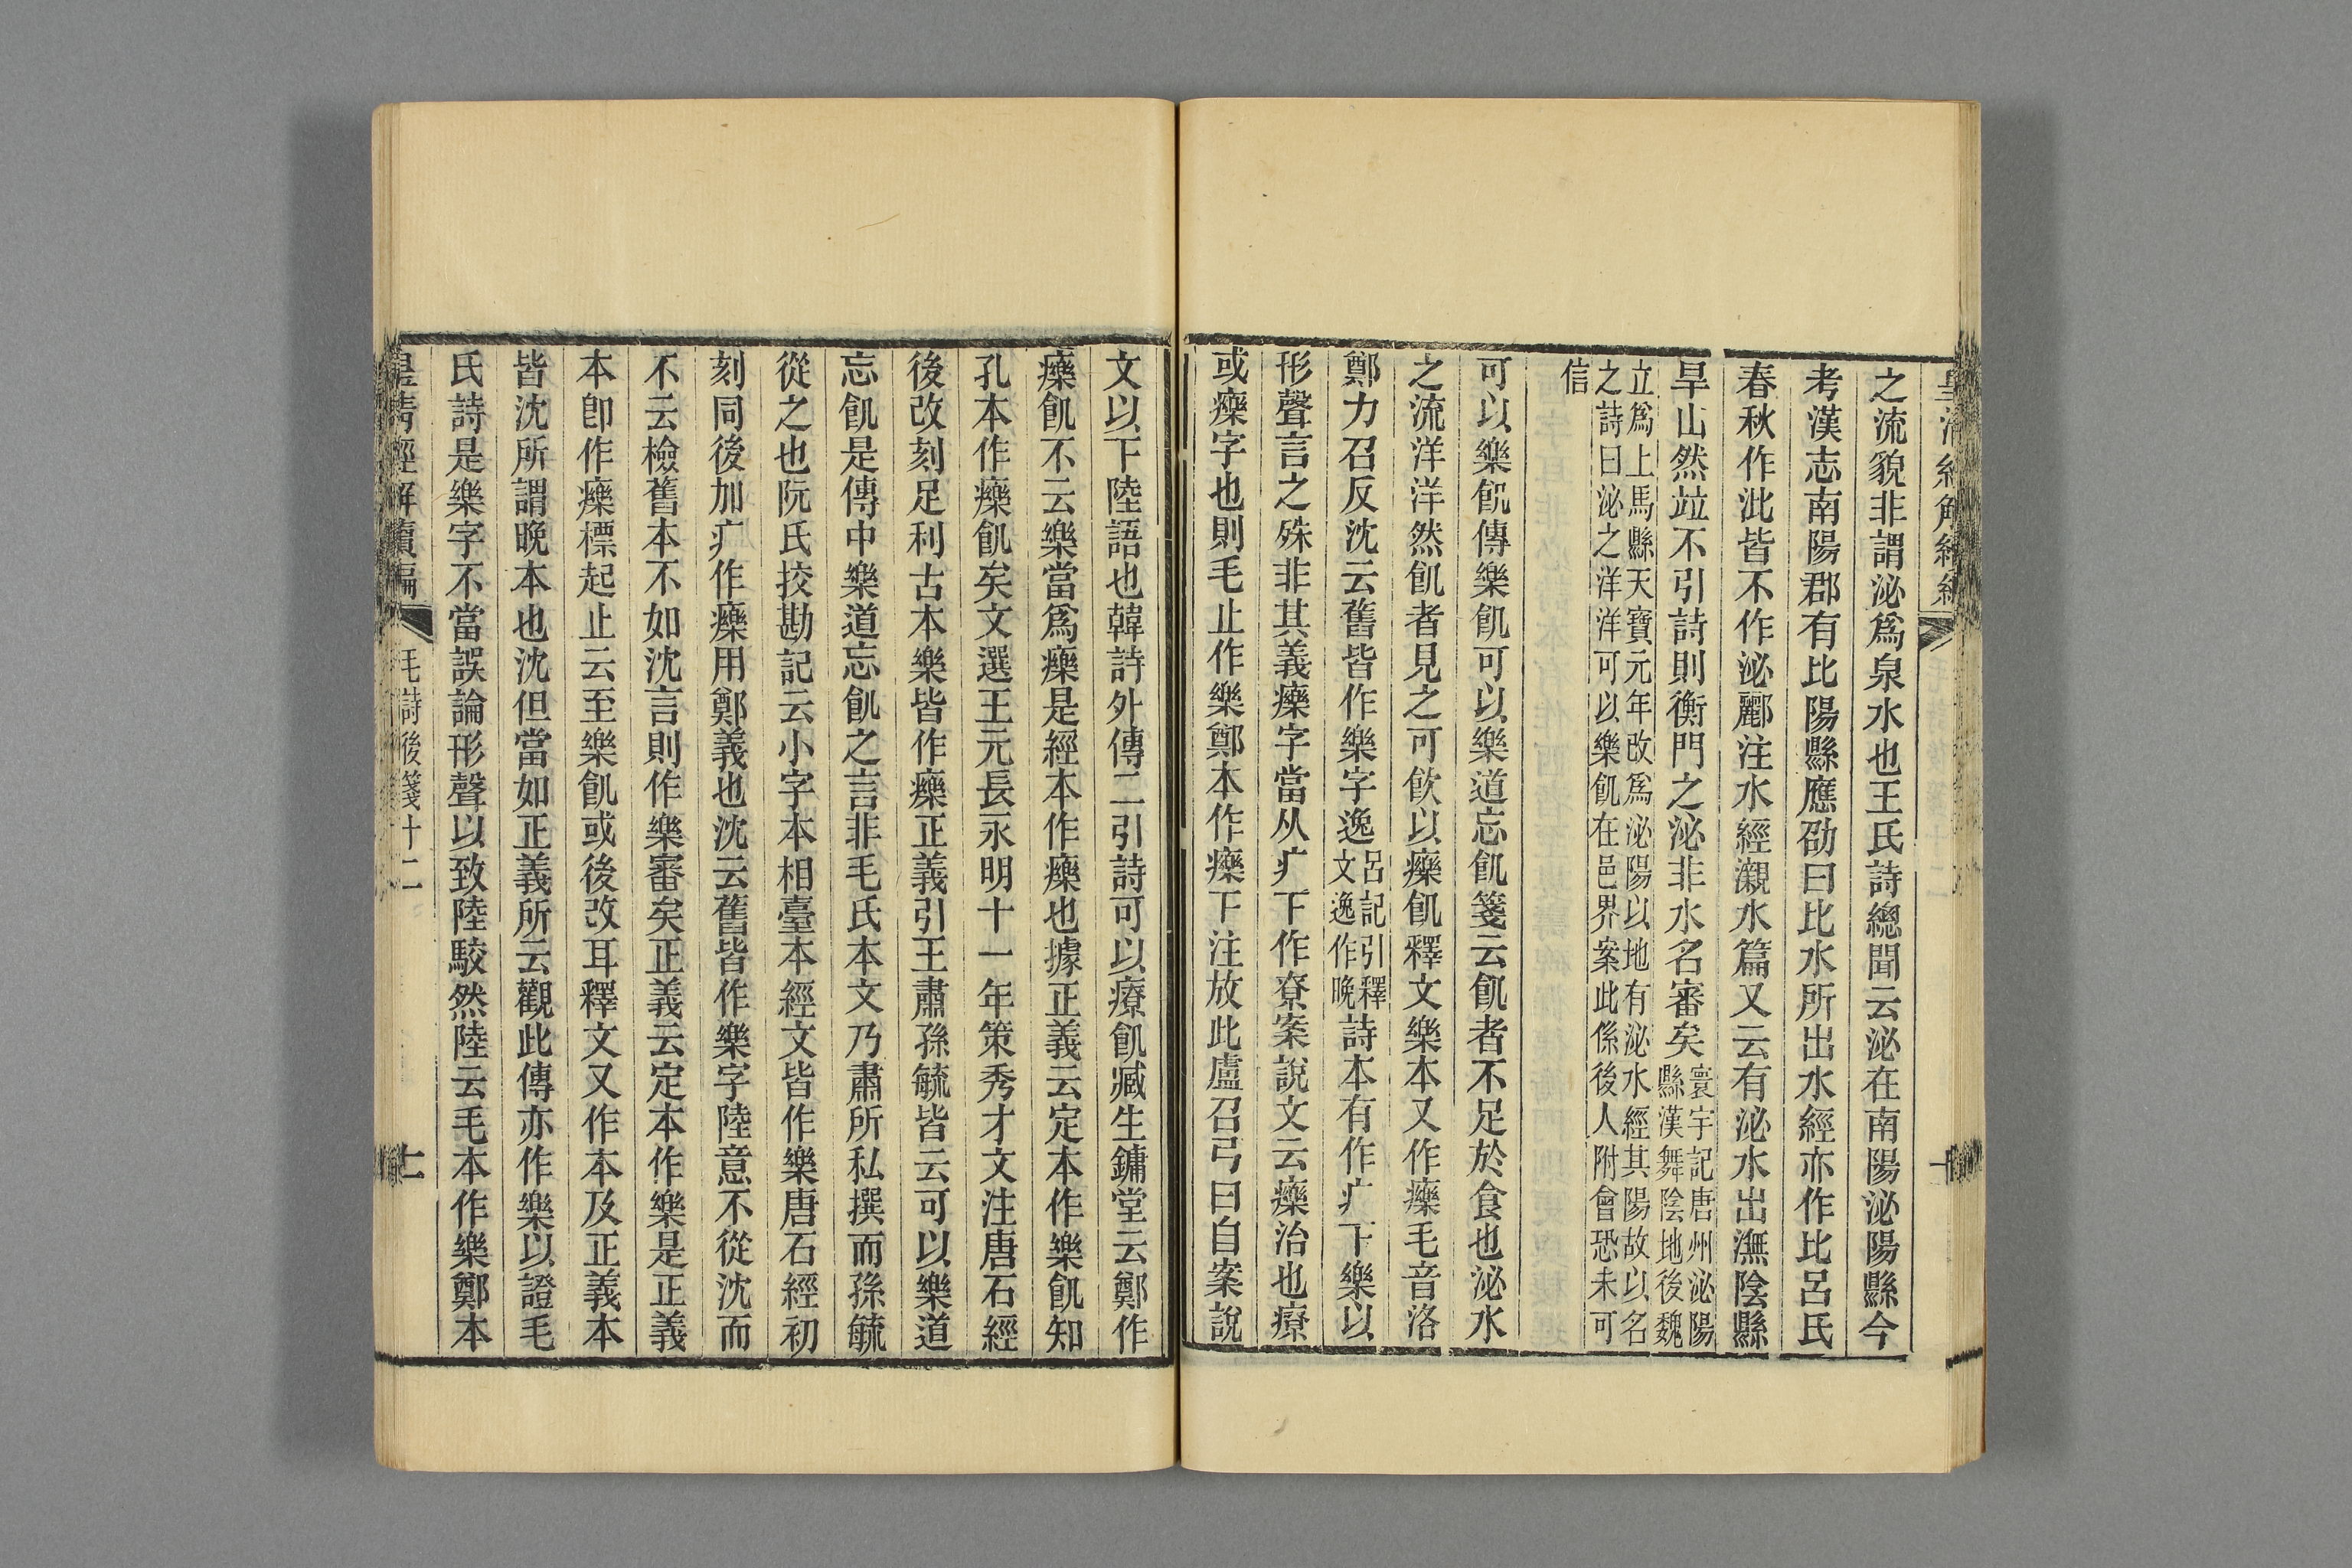 之流貌非謂泌爲泉水也王氏詩總聞云泌在南陽泌陽縣今
考漢志南陽郡有比陽縣應劭曰比水所出水經亦作比呂氏
春秋作沘皆不作泌酈注水經瀙水篇又云有泌水出潕陰縣
旱山然竝不引詩則衡門之泌非水名審矣寰宇記唐州泌陽縣漢舞陰地後魏
立爲上馬縣天寶元年改爲泌陽以地有泌水經其陽故以名
之詩曰泌之洋洋可以樂飢在邑界案此係後人附會恐未可
信
可以樂飢傳樂飢可以樂道忘飢箋云飢者不足於食也泌水
之流洋洋然飢者見之可飲以㿋飢釋文樂本又作㿋毛音洛
鄭力召反沈云舊皆作樂字逸呂記引釋文逸作晚詩本有作疒下樂以
形聲言之殊非其義㿋字當从疒下作尞案說文云㿋治也療
或㿋字也則毛止作樂鄭本作㿋下注放此盧召弓曰自案說
文以下陸語也韓詩外傳二引詩可以療飢臧生鏞堂云鄭作
㿋飢不云樂當爲㿋是經本作㿋也據正義云定本作樂飢知
孔本作㿋飢矣文選王元長永明十一年策秀才文注唐石經
後改刻足利古本樂皆作㿋正義引王肅孫毓皆云可以樂道
忘飢是傳中樂道忘飢之言非毛氏本文乃肅所私撰而孫毓
從之也阮氏挍勘記云小字本相臺本經文皆作樂唐石經初
刻同後加疒作㿋用鄭義也沈云舊皆作樂字陸意不從沈而
不云檢舊本不如沈言則作樂審矣正義云定本作樂是正義
本卽作㿋標起止云至樂飢或後改耳釋文又作本及正義本
皆沈所謂晚本也沈但當如正義所云觀此傳亦作樂以證毛
氏詩是樂字不當誤論形聲以致陸駮然陸云毛本作樂鄭本
皇清經解續編 毛詩後箋十二